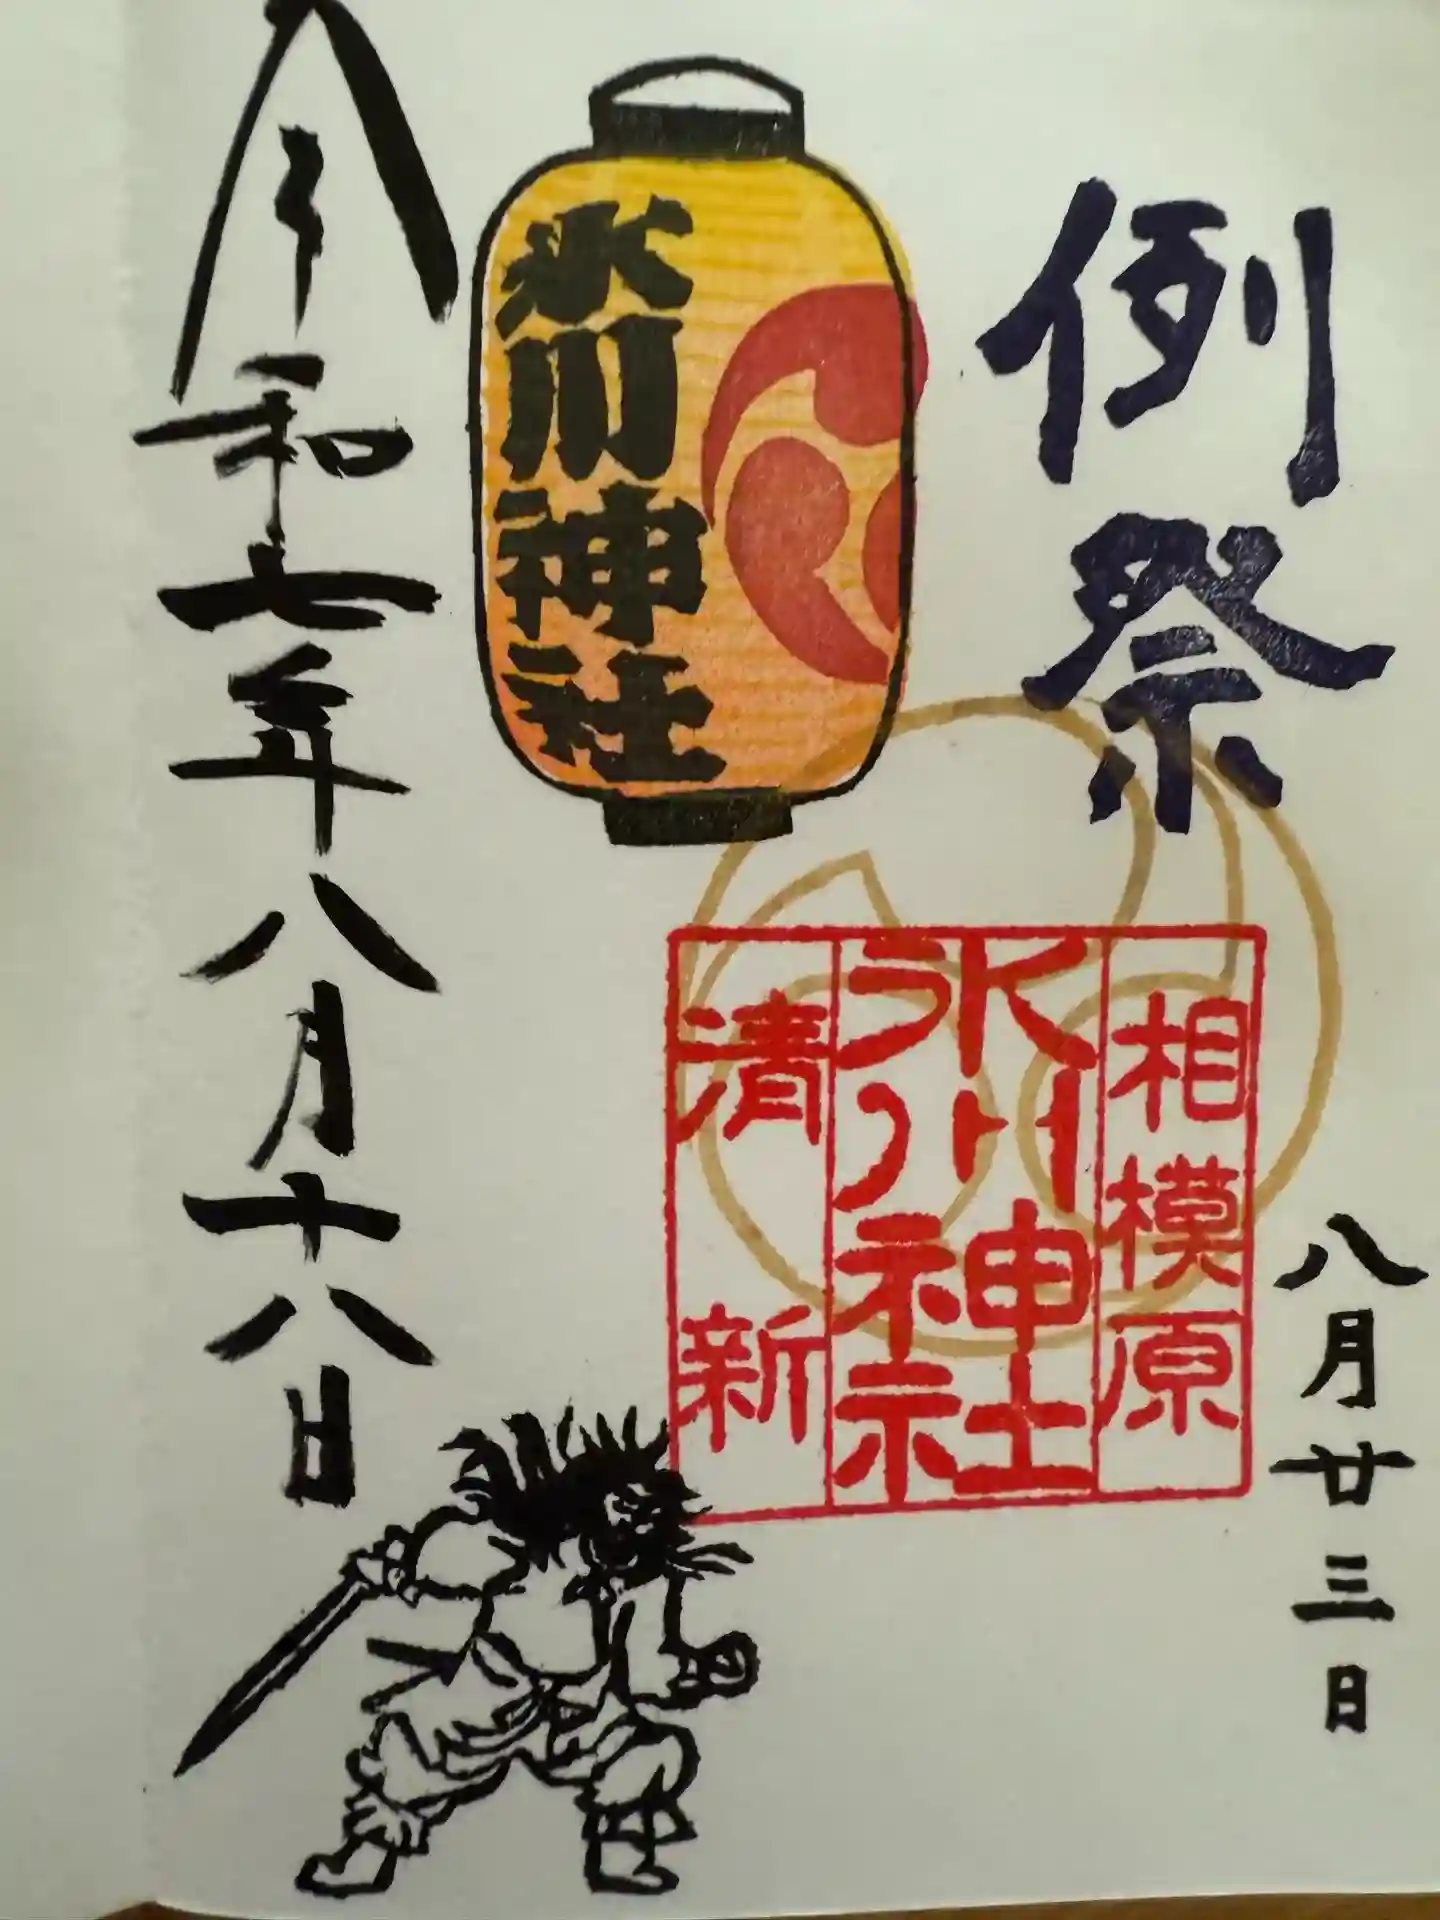 例祭
八月廿三日
相模原
氷川神社
清新
氷川神社
令和七年八月十八日